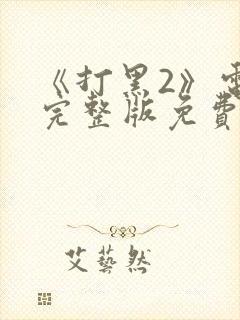 《打黑2》電
完整版免費
艾藝然